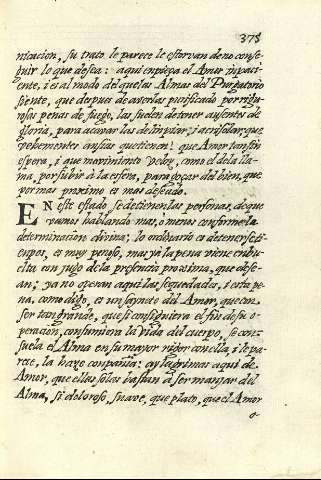 378
nicacion, su trato. le parece le estorvan de no conse-
guir lo que desea: aqui empieça el Amor inpaci-
ente, i es al modo del que las Almas del Purgatorio
siente, que despues de averlas purificado por rigu-
rosas penas de fuego, las suelen detener ausentes de
gloria, para acavar las de limpiar, i acrisolar que
vehementes ansias que tienen! que Amor tan sin
espera, i que movimiento veloz, como el de la lla-
ma, por subir à la esfera, para goçar del bien, que
por mas proximo es mas deseado.
EN este estado, se detienen las personas, de que
vamos hablando mas, ò menos conforme la
determinacion divina; lo ordinario es detenerse ti-
enpos, es muy penoso, mas ya la pena viene enbu-
elta con jugo de la presencia proxima, que dese-
an; ya no operan aqui las sequedades, i esta pe-
na, como digo, es un saynete del Amor, que con
ser tan grande, que si consiguiera el fin de su o-
peracion, consumiera la vida del cuerpo, se con-
suela el Alma en su mayor rigor con ella, i le pa-
rece, la haze conpañia: ay lagrimas aqui de
Amor, que ellas solas bastan à ser manjar del
Alma, si doloroso, suave, que plato, que el Amor